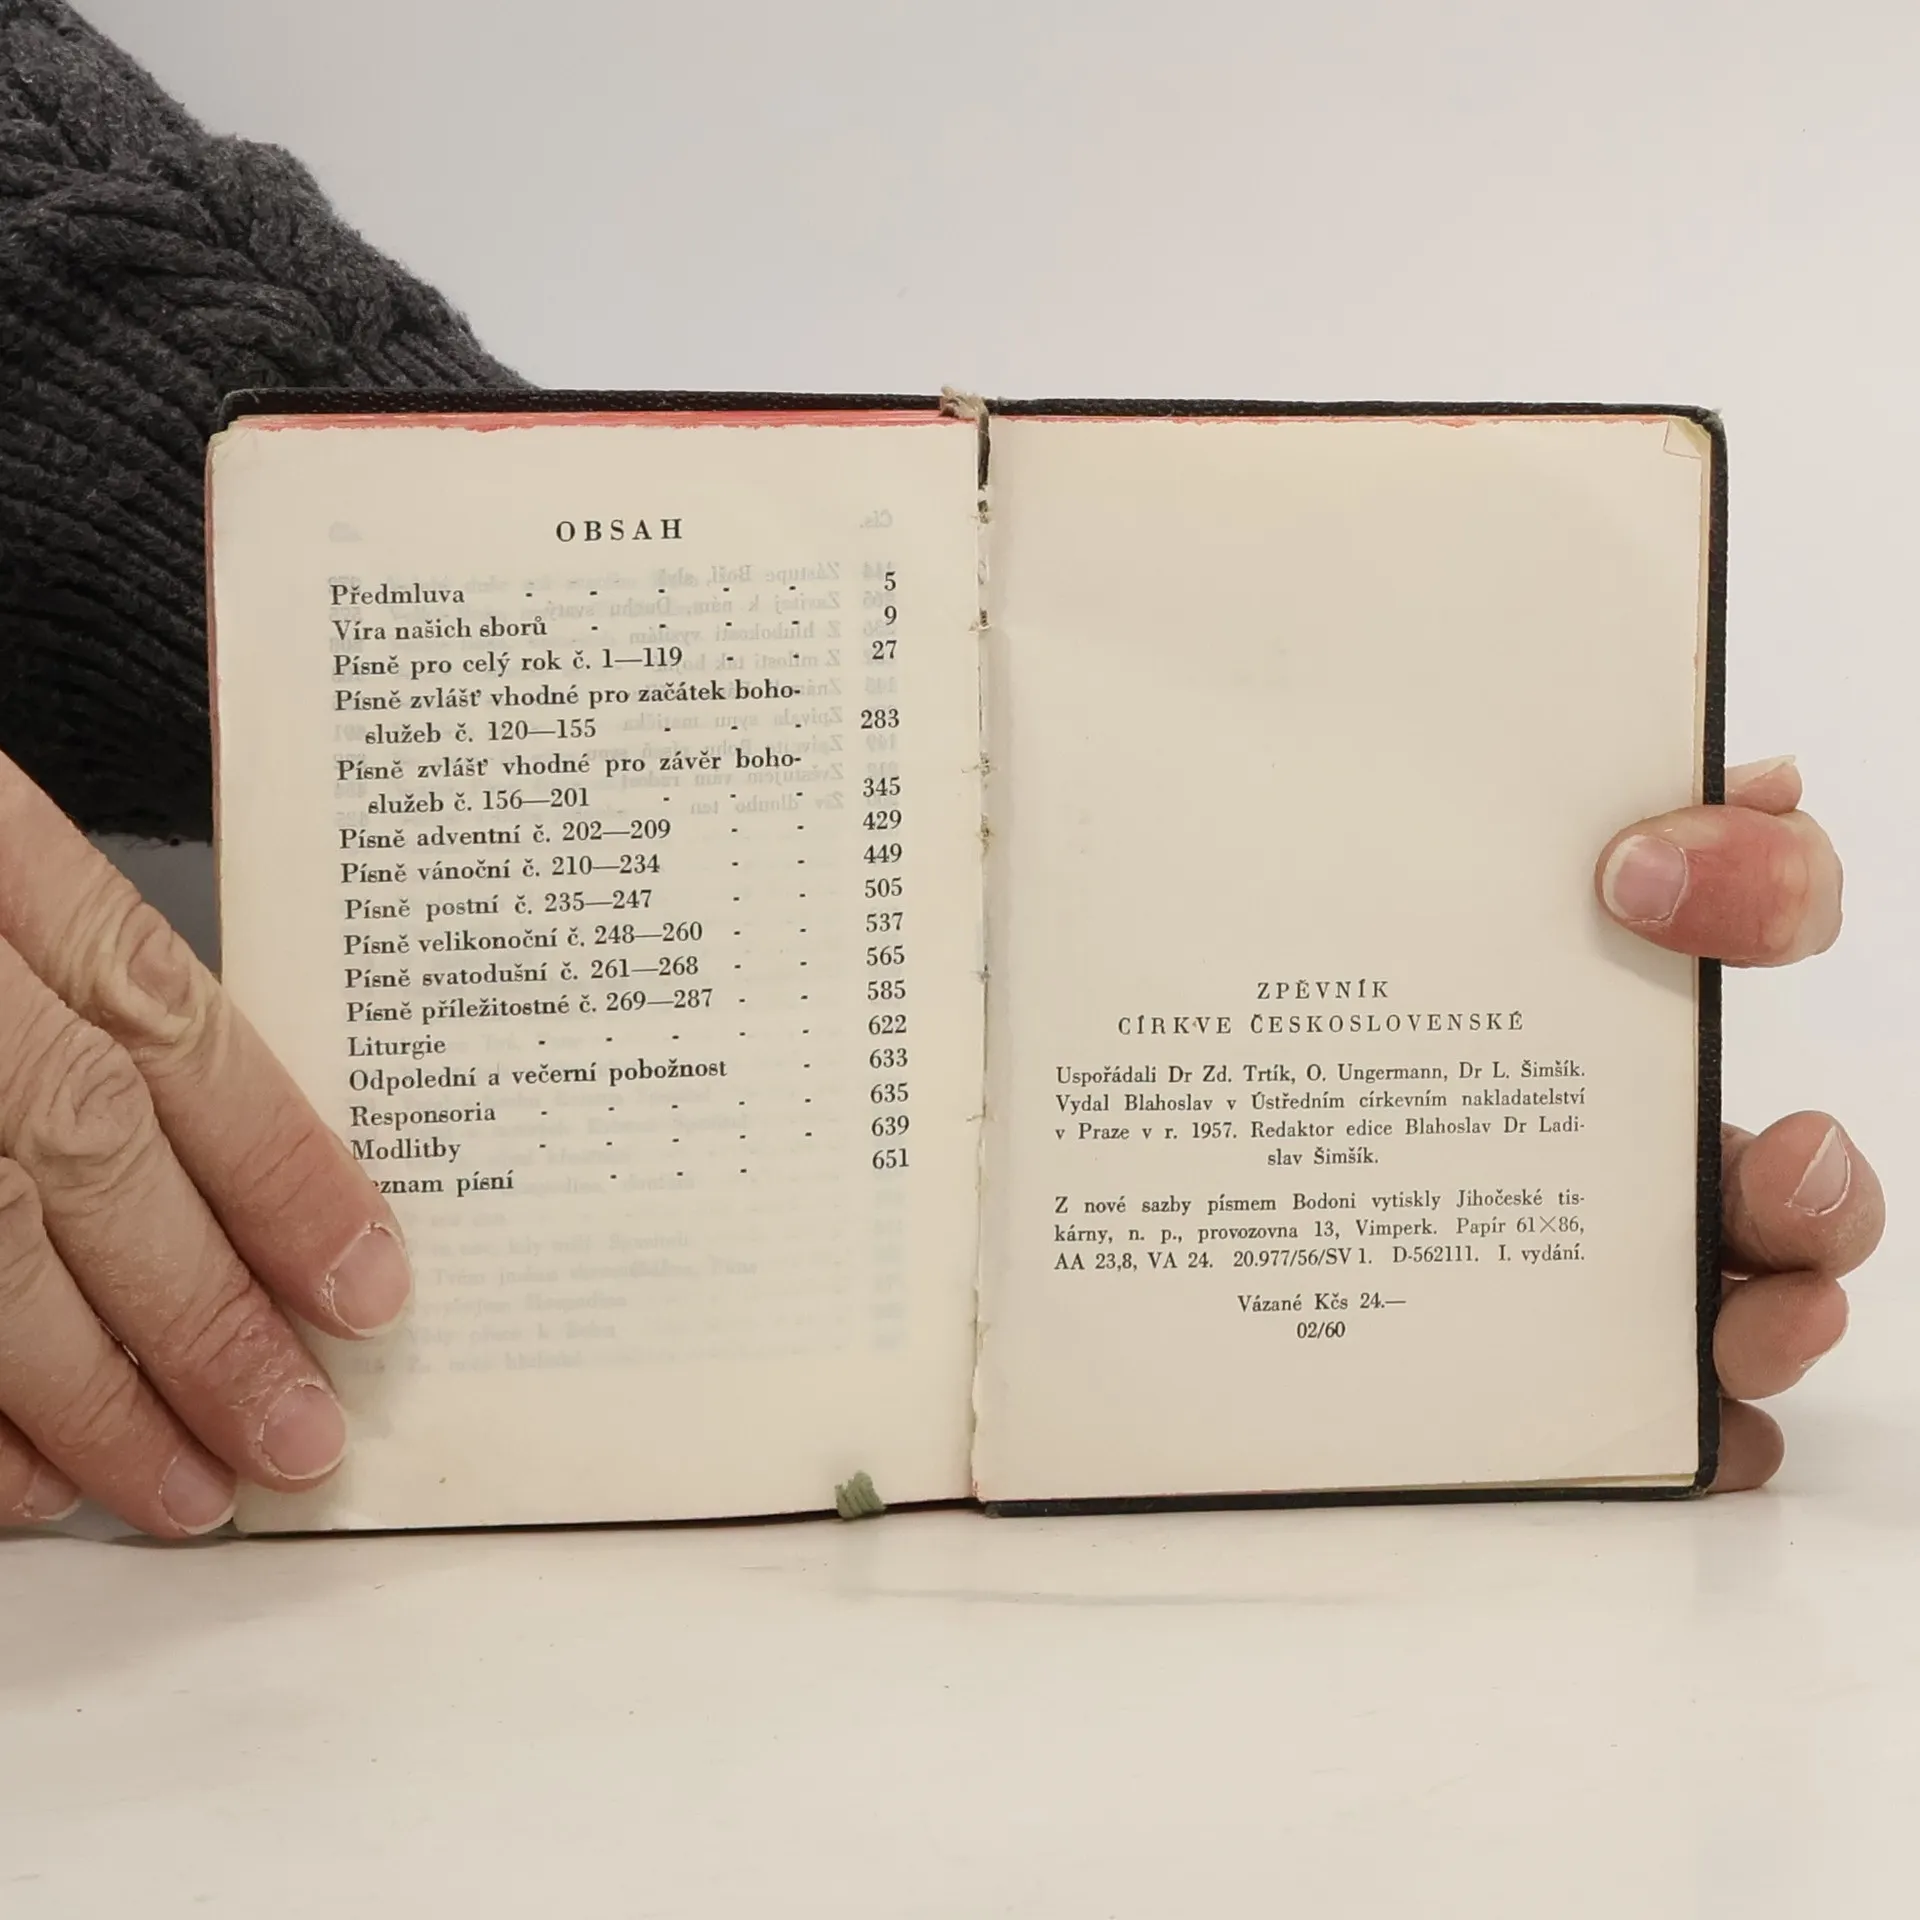 OBSAH
Předmluva - - - - - 5
Víra našich sborů - - - - 9
Písně pro celý rok č. 1—119 - - 27
Písně zvlášť vhodné pro začátek boho-
služeb č. 120—155 - - - 283
Písně zvlášť vhodné pro závěr boho-
služeb č. 156—201 - - - 345
Písně adventní č. 202—209 - - 429
Písně vánoční č. 210—234 - - 449
Písně postní č. 235—247 - - 505
Písně velikonoční č. 248—260 - - 537
Písně svatodušní č. 261—268 - - 565
Písně příležitostné č. 269—287 - - 585
Liturgie - - - - - 622
Odpolední a večerní pobožnost - 633
Responsoria - - - - - 635
Modlitby - - - - - 639
eznam písní - - - 651
ZPĚVNÍK
CÍRKVE ČESKOSLOVENSKÉ
Uspořádali Dr Zd. Trtík, O. Ungermann, Dr L. Šimšík.
Vydal Blahoslav v Ústředním církevním nakladatelství
v Praze v r. 1957. Redaktor edice Blahoslav Dr Ladi-
slav Šimšík.
Z nové sazby písmem Bodoni vytiskly Jihočeské tis-
kárny, n. p., provozovna 13, Vimperk. Papír 61×86,
AA 23,8, VA 24. 20.977/56/SV 1. D-562111. I. vydání.
Vázané Kčs 24.—
02/60